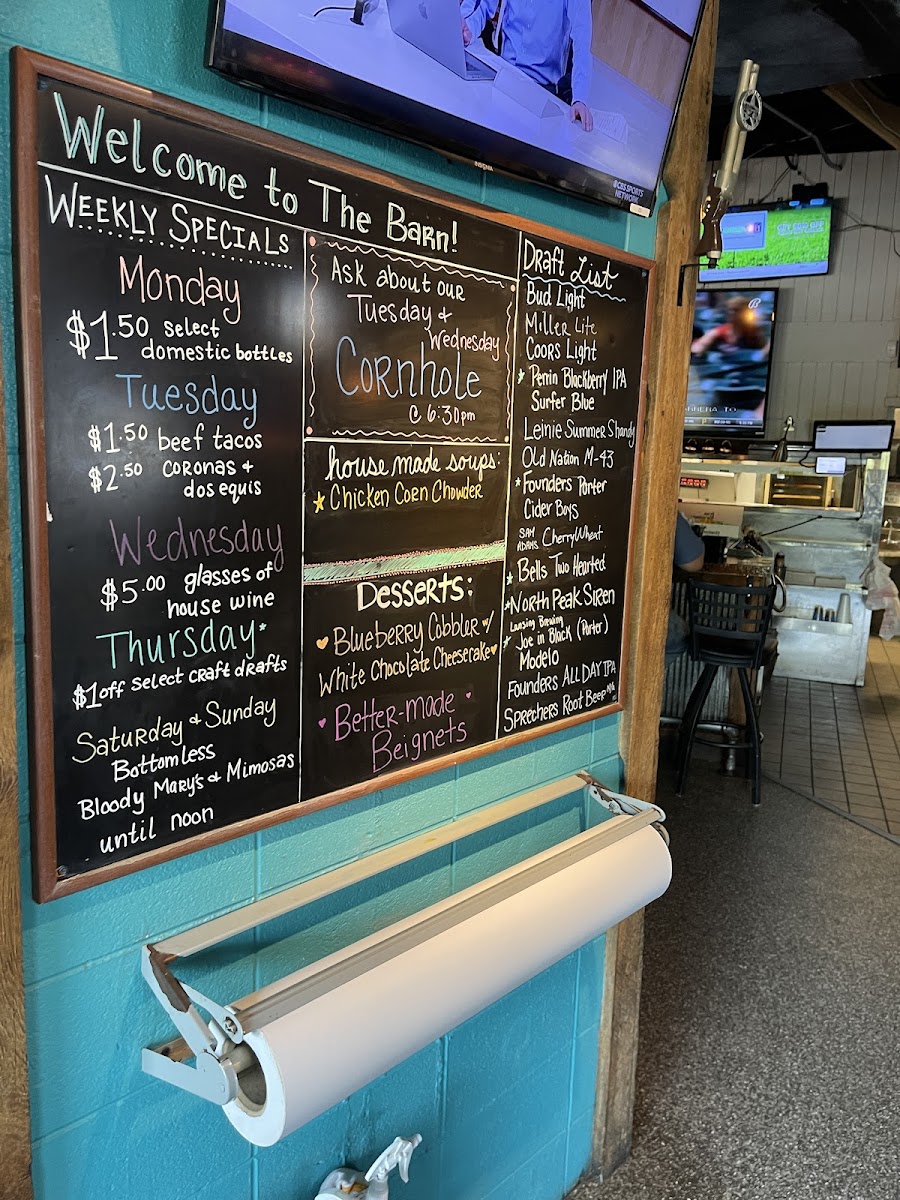 CBS SPORTS
NETWORK
INSIGNIA
Welcome to The Barn!
WEEKLY SPECIALS
Monday
$1.50 select
domestic bottles
Tuesday
$1.50 beef tacos
$2.50 coronas +
dos equis
Wednesday
$5.00 glasses of
house wine
Thursday*
$1 off select craft drafts
Saturday & Sunday
Bottomless
Bloody Mary's & Mimosas
until noon
ASK about our
Tuesday &
Wednesday
CORNHOLE
@ 6:30pm
house made soups:
Chicken Corn Chowder
DESSERTS:
Blueberry Cobbler w/
White Chocolate Cheesecake
Better-made
Beignets
Draft List
Bud Light
Miller Lite
Coors Light
* Perrin Blackberry IPA
Surfer Blue
Leinie Summer Shandy
Old Nation M-43
* Founders Porter
Cider Boys
SAM ADAMS Cherry Wheat
* Bells Two Hearted
* North Peak Siren
Lansing Brewing
* Joe in Black (Porter)
Modelo
Founders ALL DAY IPA
Sprechers Root Beer N/A